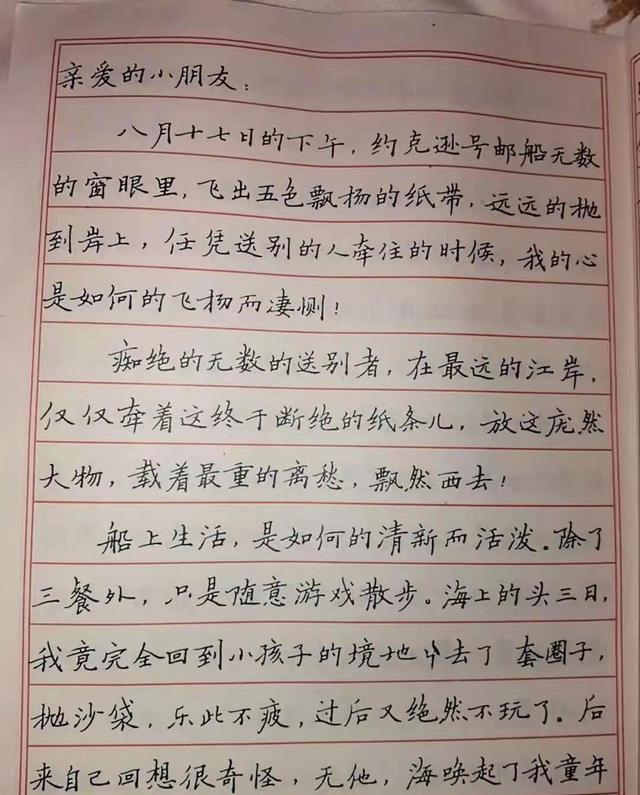 亲爱的小朋友：
八月十七日的下午，约克逊号邮船无数
的窗眼里，飞出五色飘杨的纸带，远远的抛
到岸上，任凭送别的人牵住的时候，我的心
是如何的飞杨而凄恻！
痴绝的无数的送别者，在最远的江岸，
仅仅牵着这终于断绝的纸条儿，放这庞然
大物，载着最重的离愁，飘然西去！
船上生活，是如何的清新而活泼。除了
三餐外，只是随意游戏散步。海上的头三日，
我竟完全回到小孩子的境地中去了套圈子，
抛沙袋，乐此不疲，过后又绝然不玩了。后
来自己回想很奇怪，无他，海唤起了我童年